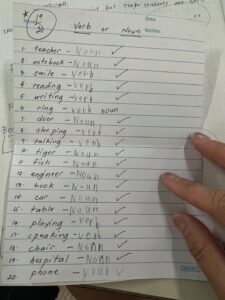 19
20
Verb or Noun
Date:
1. teacher - Noun ✓
2. notebook - Noun ✓
3. smile - verb ✓
4. reading - verb ✓
5. writing - verb ✓
6. ring - verb noun ✓
7. door - Noun ✓
8. sleeping - verb ✓
9. talking - verb ✓
10. tiger - Noun ✓
11. fish - Noun ✓
12. engineer - Noun ✓
13. book - Noun ✓
14. car - Noun ✓
15. table - Noun ✓
16. playing - verb ✓
17. speaking - verb ✓
18. chair - Noun ✓
19. hospital - Noun ✓
20. phone -